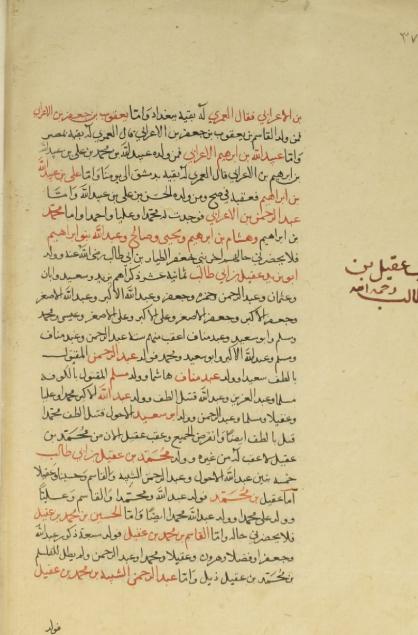 ٣٧
بن الاعرابي فقال العمري له بقية ببغداد واما يعقوب بن جعفر بن الاعرابي
فمن ولد القاسم بن يعقوب بن جعفر بن الاعرابي قال العمري له بقية بمصر
واما عبيد الله بن ابرهيم الاعرابي فمن ولده عبيد الله بن محمد بن علي بن عبيد الله
بن ابرهيم بن الاعرابي قال العمري له بقية بدمشق الى يومنا واما علي بن عبد الله
بن ابراهيم فعقبه في صح ومن ولده الحسن بن علي بن عبد الله واما
عبد الرحمن بن الاعرابي فوجدت له محمدا وعليا واحمد واما محمد
بن ابراهيم وهشام بن ابرهيم ويحيى وصالح وعبد الله بنو ابراهيم
فلا يحضرني حالهم اخر بني جعفر الطيار بن ابي طالب رضي الله عنه وولد
ابو يزيد عقيل بن ابي طالب ثمانية عشر ذكرا هم يزيد وسعيد وابان
وعثمان وعبد الرحمن وحمزه وجعفر وعبد الله الاكبر وعبد الله الاصغر
وجعفر الاكبر وجعفر الاصغر وعلي الاكبر وعلي الاصغر وعيسى ومحمد
ومسلم وابو سعيد وعبد مناف اعقب منهم ستة عبد الرحمن وعبد مناف
ومسلم وعبد الله الاكبر وابو سعيد ومحمد فولد عبد الرحمن المقتول
بالطف سعيدا وولد عبد مناف هاشما وولد مسلم المقتول بالكوفة
مسلما وعبد العزيز وعبد الله قتل الطف وولد عبد الله الاكبر محمدا وعليا
وعقيلا ومسلما وعبد الرحمن وولد ابو سعيد الاحول قتل الطف محمدا
قتل بالطف ايضا وانقرض الجميع وعقب عقيل الان من محمد بن
عقيل لا عقب له من غيره وولد محمد بن عقيل بن ابي طالب
خمسة بنين عبد الله الاحول وعبد الرحمن الشبيه والقاسم وحسينا وعقيلا
اما عقيل بن محمد فولد عبد الله ومحمدا والقاسم وعليا
وولد علي محمدا وولد عبد الله محمدا ايضا واما الحسين بن محمد بن عقيل
فلا يحضرني حاله واما القاسم بن محمد بن عقيل فولد سبعة ذكور عبد الله
وجعفرا وفضلا وهرون وعقيلا ومحمدا وعبد الرحمن للقاسم
بن محمد بن عقيل ذيل واما عبد الرحمن الشبيه بن محمد بن عقيل
فولد
عقيل بن
طالب رحمه الله